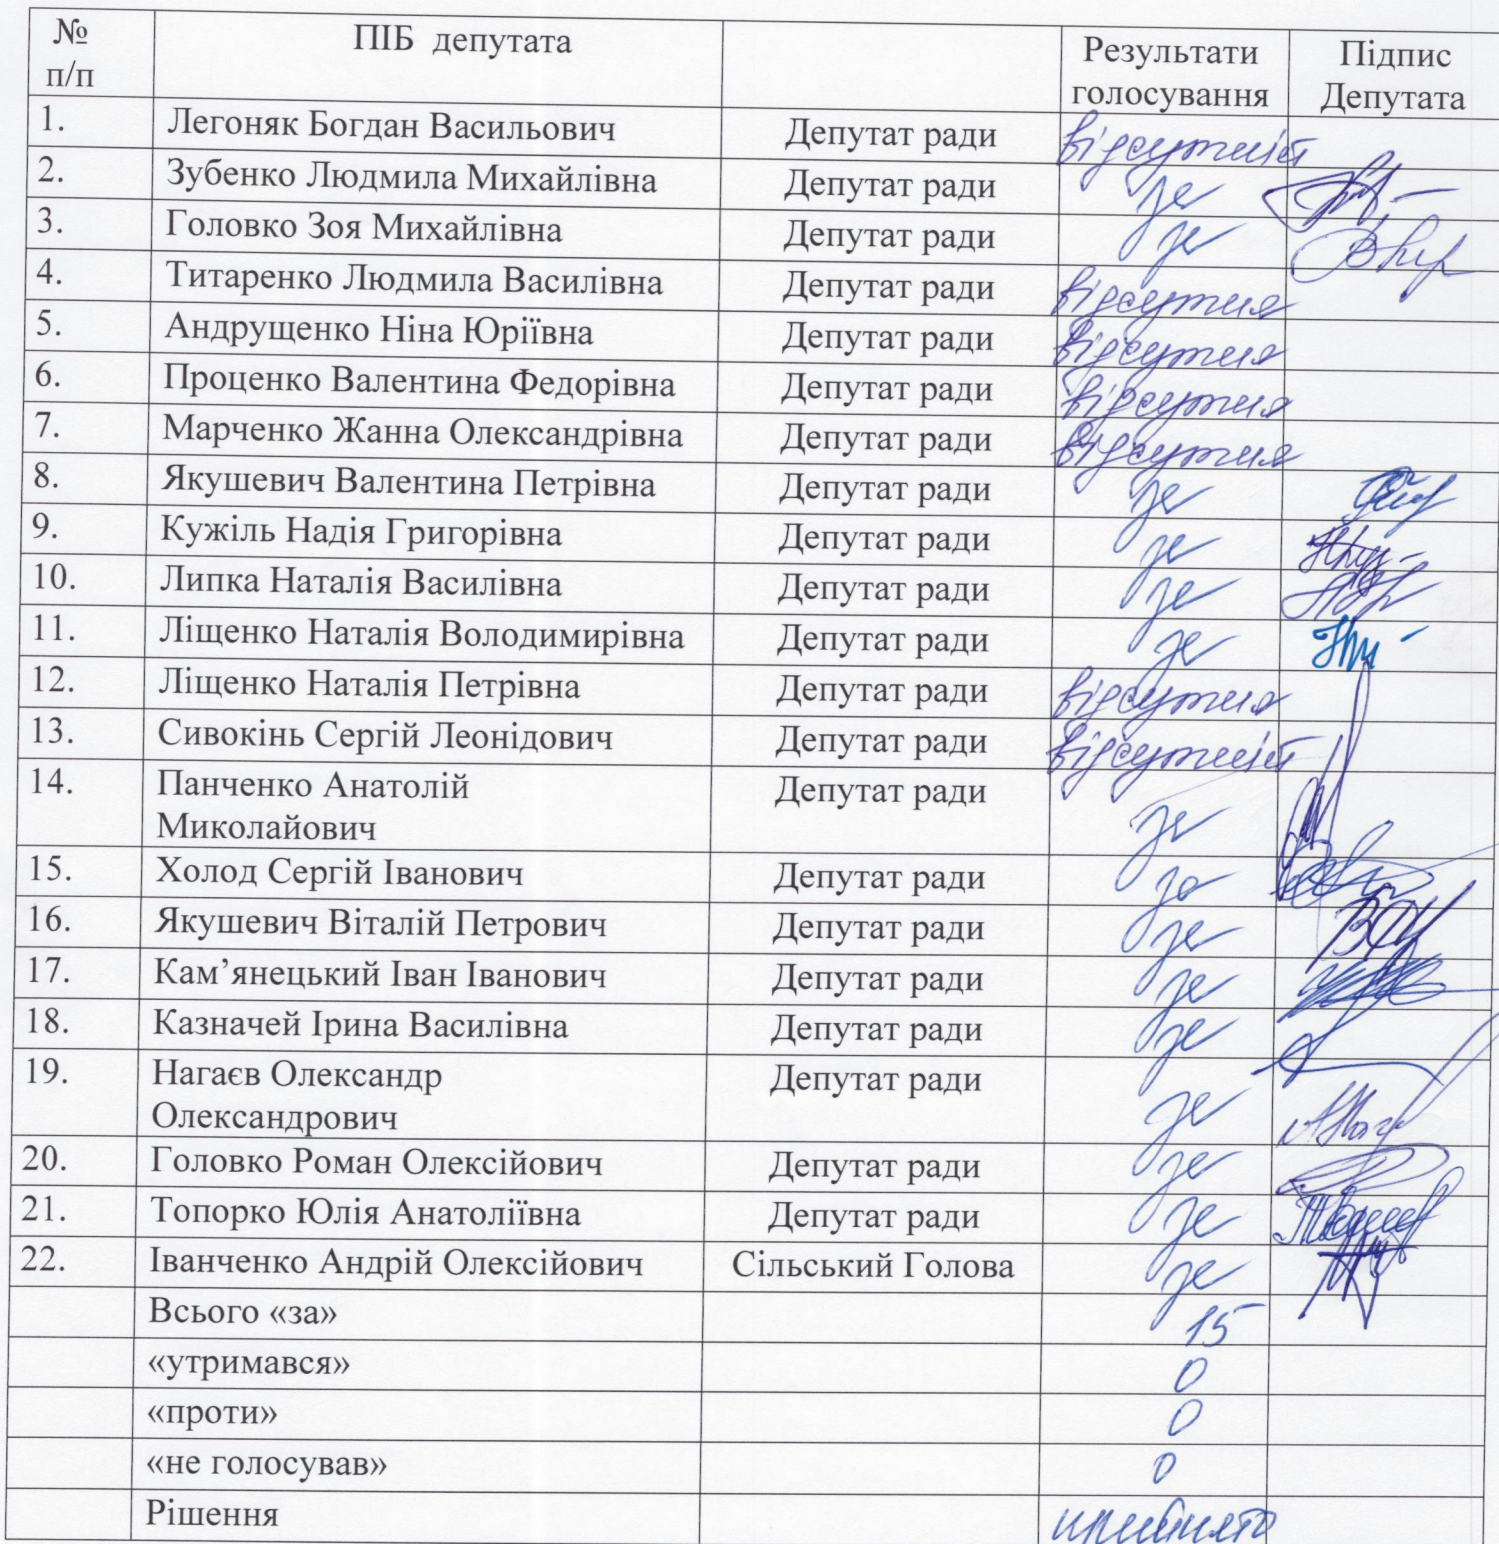 № п/п ПІБ депутата Результати голосування Підпис Депутата
1. Легоняк Богдан Васильович Депутат ради відсутній
2. Зубенко Людмила Михайлівна Депутат ради за
3. Головко Зоя Михайлівна Депутат ради за
4. Титаренко Людмила Василівна Депутат ради відсутня
5. Андрущенко Ніна Юріївна Депутат ради відсутня
6. Проценко Валентина Федорівна Депутат ради відсутня
7. Марченко Жанна Олександрівна Депутат ради відсутня
8. Якушевич Валентина Петрівна Депутат ради за
9. Кужіль Надія Григорівна Депутат ради за
10. Липка Наталія Василівна Депутат ради за
11. Ліщенко Наталія Володимирівна Депутат ради за
12. Ліщенко Наталія Петрівна Депутат ради відсутня
13. Сивокінь Сергій Леонідович Депутат ради відсутній
14. Панченко Анатолій Депутат ради
Миколайович за
15. Холод Сергій Іванович Депутат ради за
16. Якушевич Віталій Петрович Депутат ради за
17. Кам’янецький Іван Іванович Депутат ради за
18. Казначей Ірина Василівна Депутат ради за
19. Нагаєв Олександр Депутат ради
Олександрович за
20. Головко Роман Олексійович Депутат ради за
21. Топорко Юлія Анатоліївна Депутат ради за
22. Іванченко Андрій Олексійович Сільський Голова за
Всього «за» 15
«утримався» 0
«проти» 0
«не голосував» 0
Рішення прийнято